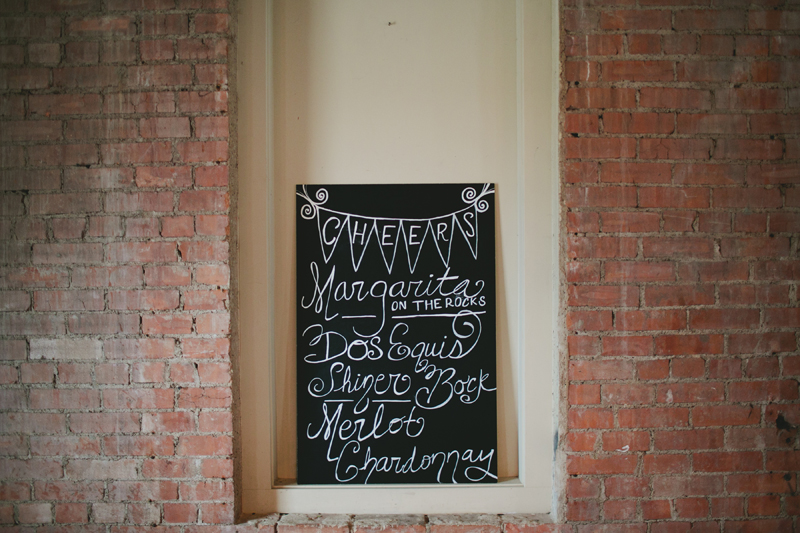 CHEERS
Margarita
ON THE ROCKS
Dos Equis
Shiner Bock
Merlot
Chardonnay